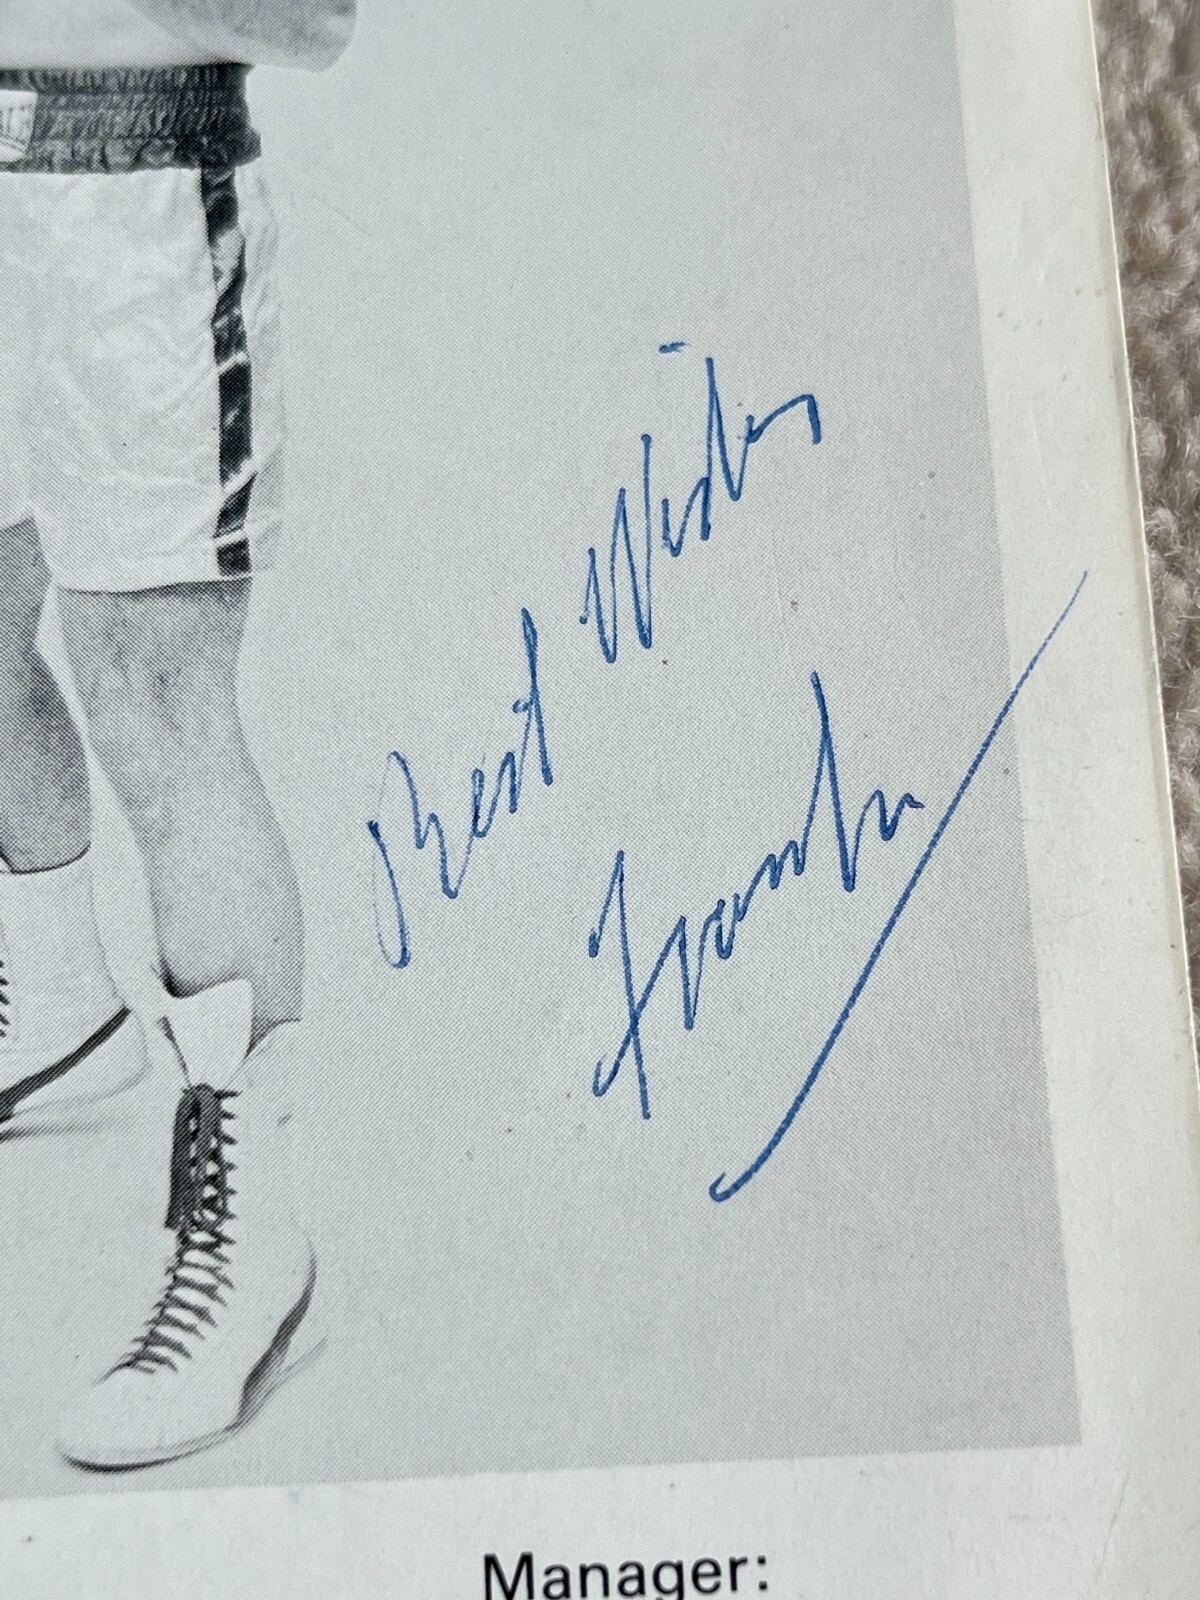 Best Wishes
Frank
Manager: